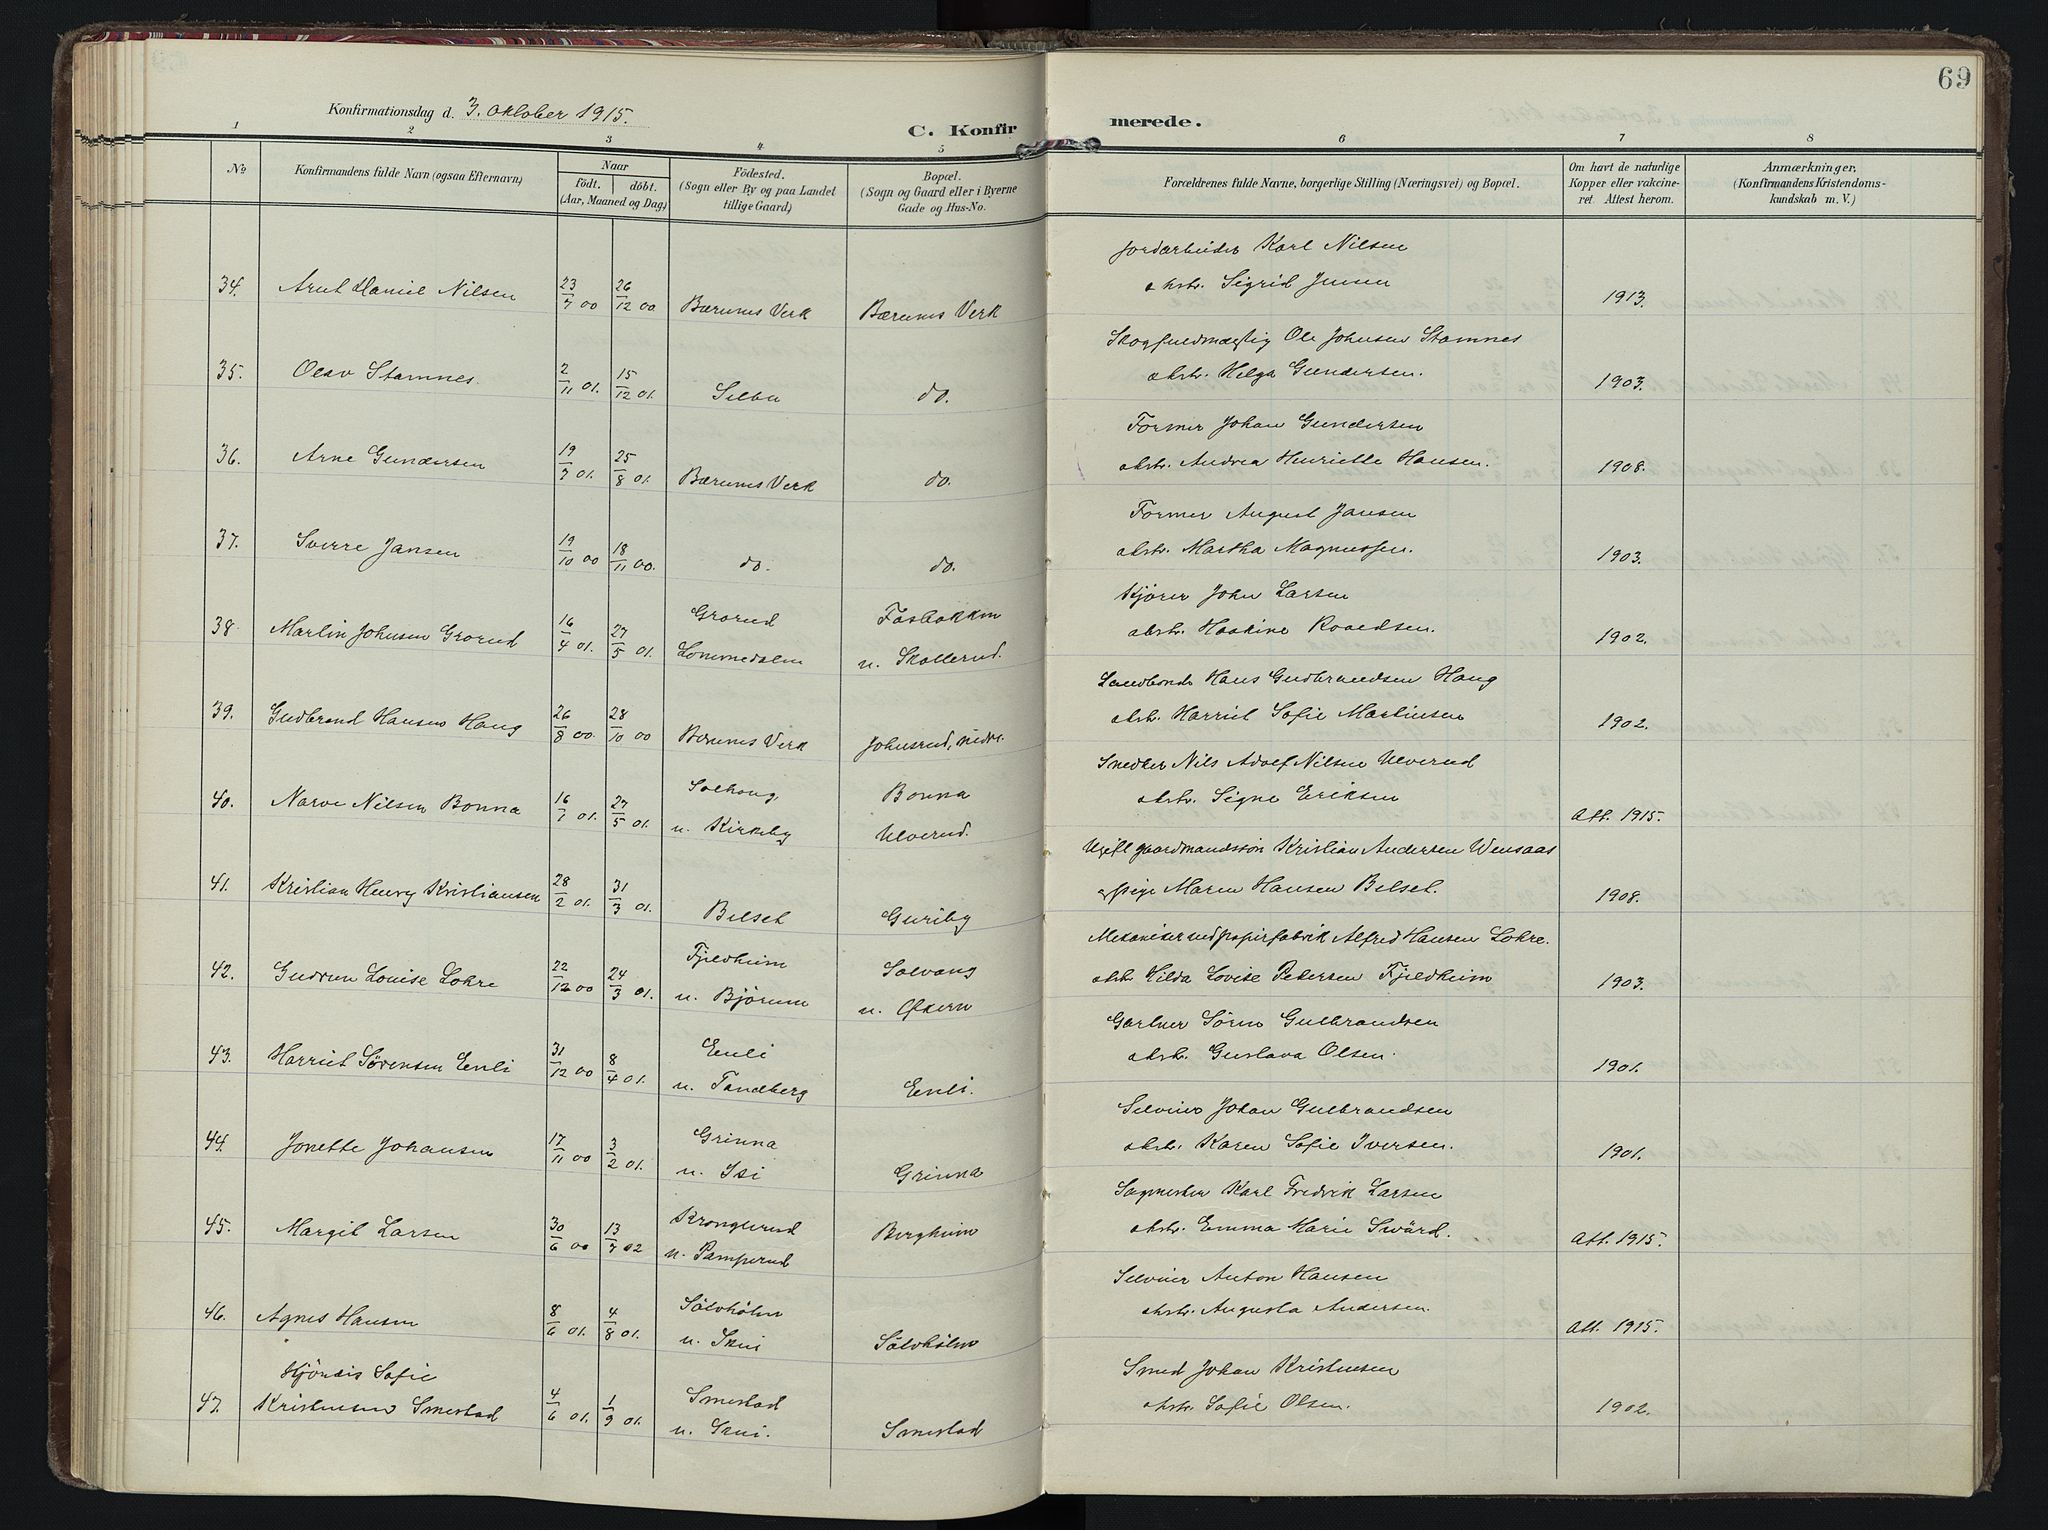 69
Konfirmationsdag d. 3. oktober 1915.
C. Konfirmerede.
1 2 3 4 5 6 7 8
No.
Konfirmandens fulde Navn (ogsaa Efternavn)
Naar
født. døbt.
(Aar, Maaned og Dag)
Födested.
(Sogn eller By og paa Landet
tillige Gaard)
Bopæl.
(Sogn og Gaard eller i Byerne
Gade og Hus-No.
Forældrenes fulde Navne, borgerlige Stilling (Næringsvei) og Bopæl.
Om havt de naturlige
Kopper eller vakcine-
ret. Attest herom.
Anmærkninger.
(Konfirmandens Kristendoms-
kundskab m. V.)
Jordarbeider Karl Nilsen
34. Arnt Daniel Nilsen 23/7 00 26/12 00 Bærums Verk Bærums Verk
ekstr. Sigrid Jensen 1913.
Skogfuldmægtig Ole Johnsen Stamnes
35. Olav Stamnes. 2/11 01. 15/12 01. Selbu do.
ekstr. Helga Gundersen. 1903.
Former Johan Gundersen
36. Arne Gundersen 19/7 01. 25/8 01. Bærums Verk do.
ekstr. Andrea Henriette Hansen. 1908.
Former August Jansen
37. Sverre Jansen 19/10 00 18/11 00. do. do.
ekstr. Martha Magnussen. 1903.
Kjører John Larsen
38. Martin Johnsen Grorud 16/4 01. 27/5 01. Grorud Lommedalen Fosbakken u. Skollerud.
ekstr. Haakine Roaldsen. 1902.
Landbonde Hans Gudbrandsen Haug
39. Gudbrand Hansen Haug 26/8 00. 28/10 00 Bærums Verk Johnsrud, nedre.
ekstr. Harriet Sofie Martinsen 1902.
Snedker Nils Adolf Nilsen Ulverud
40. Narve Nilsen Bonna 16/1 01. 27/5 01. Solhaug, u. Kirkeby Bonna Ulverud.
ekstr. Signe Eriksen Att. 1915.
Ugift gaardmandssøn Kristian Andersen Wensaas
41. Kristian Henry Kristiansen 28/2 01. 31/3 01. Belset Guriby
og pige Maren Hansen Belset. 1908.
Mekaniker ved papirfabrik Alfred Hansen Lohre.
42. Gudrun Louise Lohre 22/12 00 24/3 01. Fjeldheim u. Bjørum Solvang u. Økern
ekstr. Hilda Lovise Pedersen Fjeldheim 1903.
Gartner Søren Gulbrandsen
43. Harriet Sørensen Enli 31/12 00 8/4 01. Enli u. Tandberg Enli.
ekstr. Gustava Olsen. 1901.
Selveier Johan Gulbrandsen
44. Jonette Johansen 17/11 00 3/2 01. Grinna u. Isi Grinna
ekstr. Karen Sofie Iversen. 1901.
Sagmester Karl Fredrik Larsen
45. Margit Larsen 30/6 00 13/7 02 Kronglerud u. Pamperud Bergheim
ekstr. Emma Marie Swärd. Att. 1915.
Selveier Anton Hansen
46. Agnes Hansen 8/6 01. 4/8 01. Sölvhölen u. Skui Sölvhölen
ekstr. Augusta Andersen. Att. 1915.
Smed Johan Kristensen
47. Hjördis Sofie Kristensen Smestad 4/6 01. 1/9 01. Smestad u. Skui. Smestad
ekstr. Sofie Olsen. 1902.